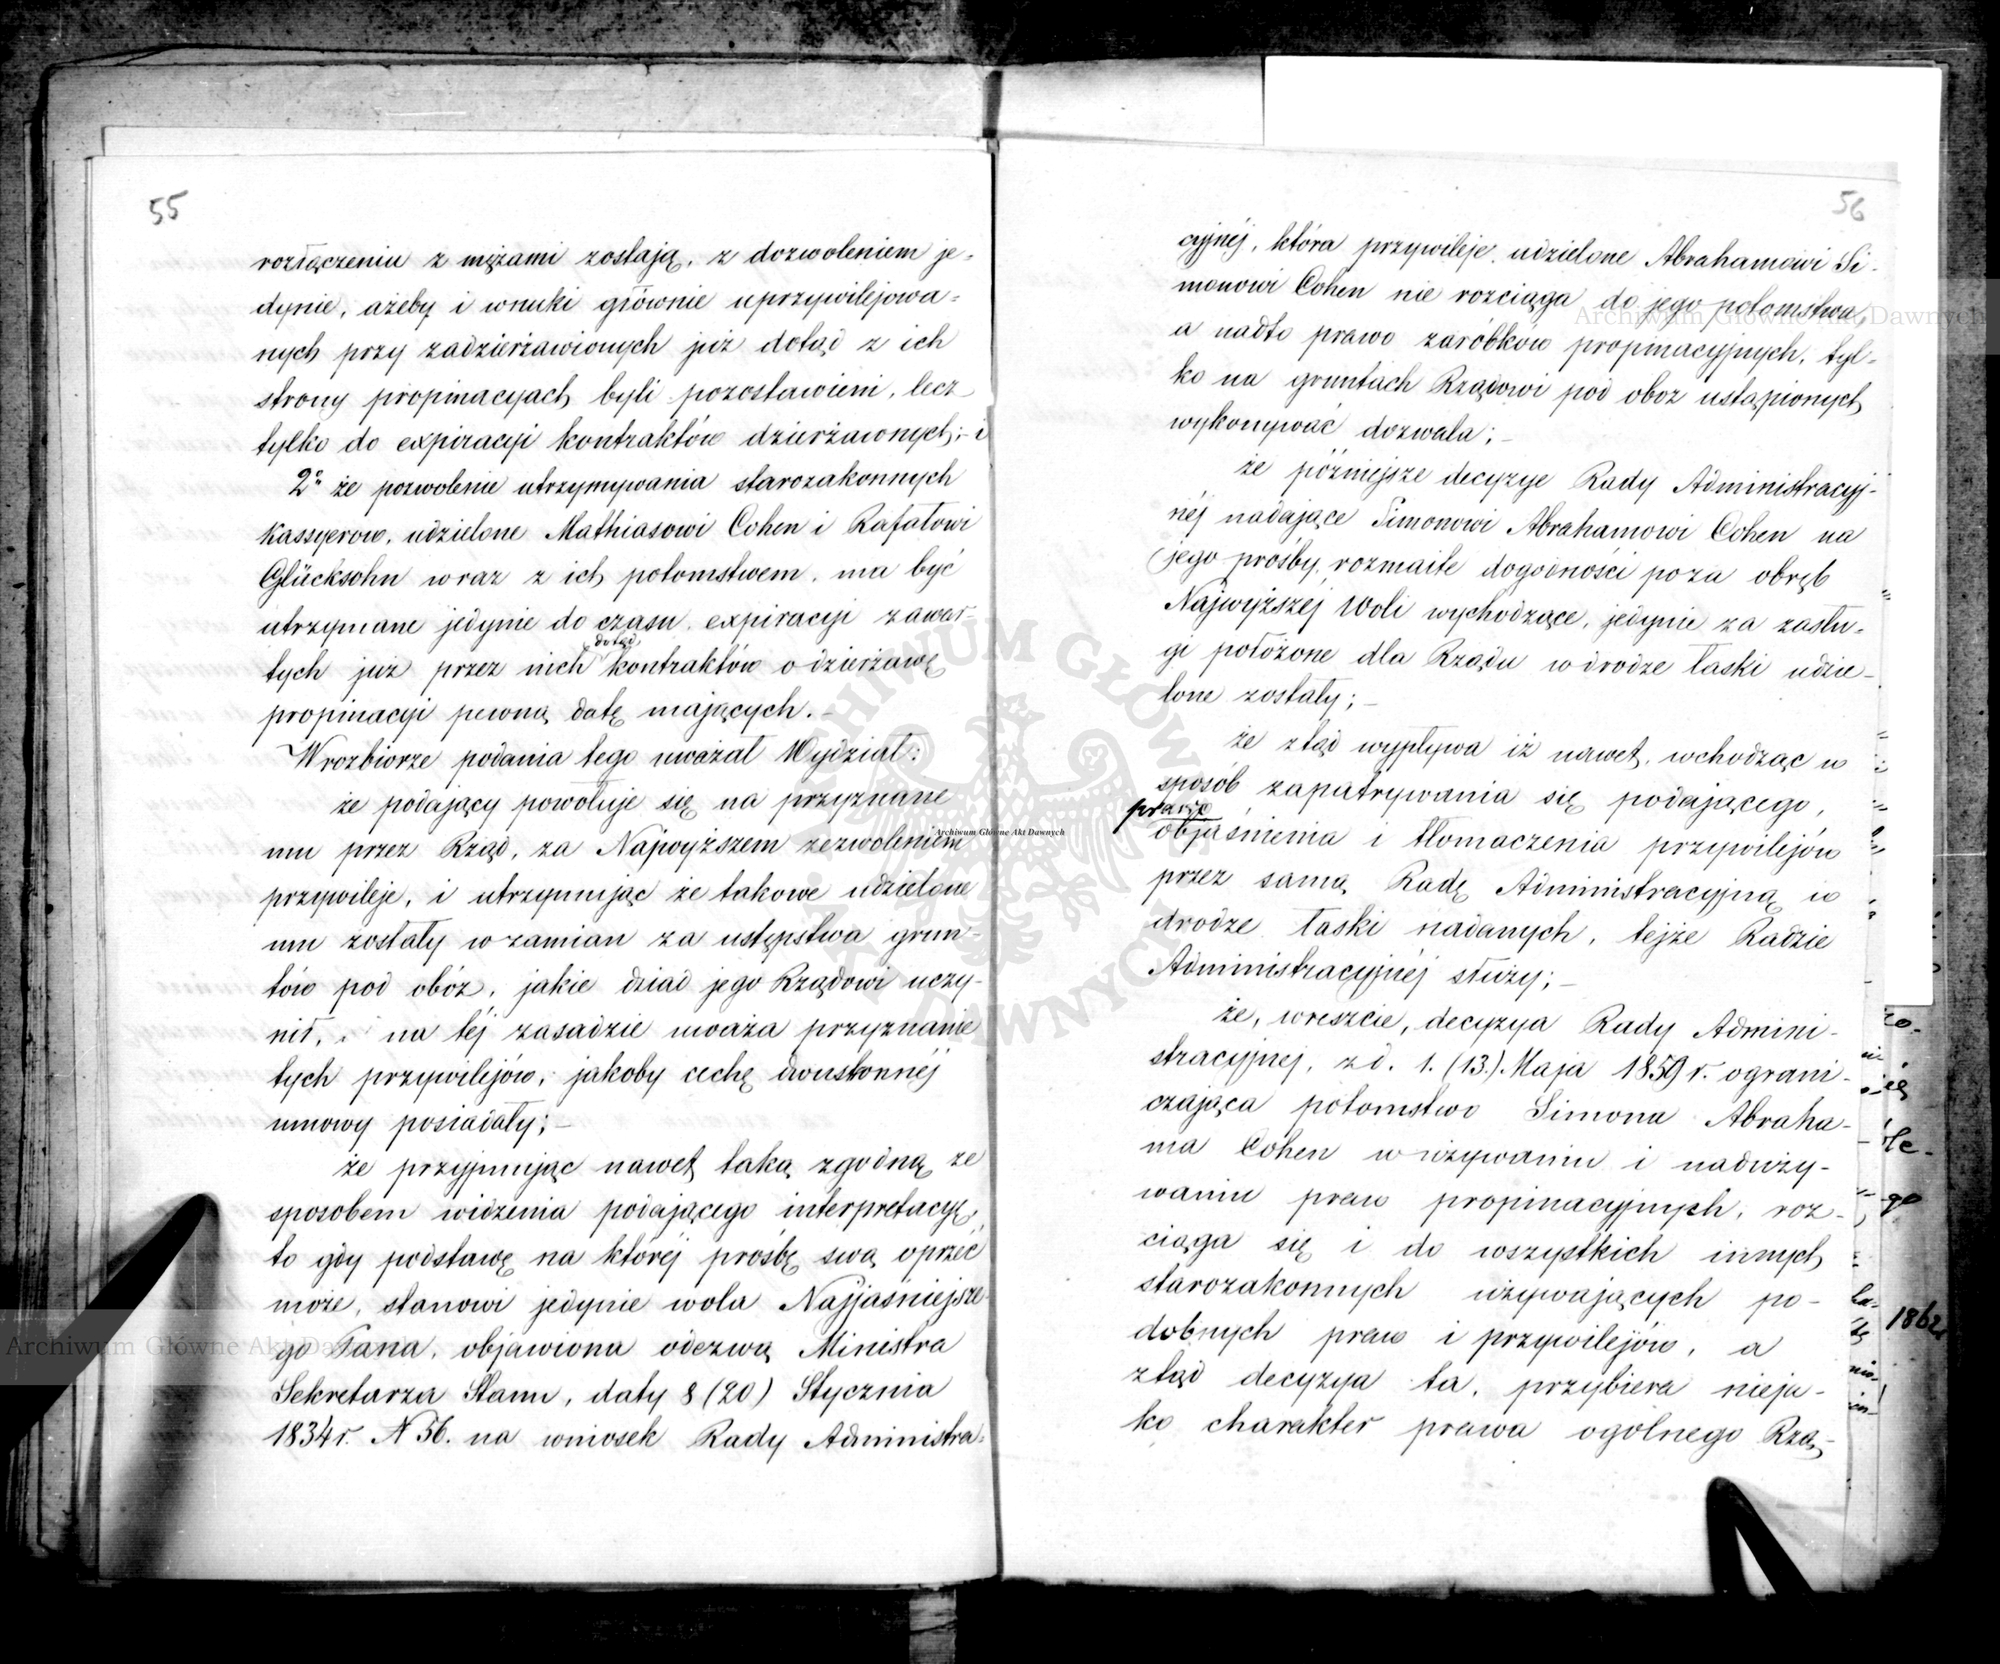 55
rozłączeniu z mężami zostają, z dozwoleniem je-
dynie, ażeby i wnuki głównie uprzywilejowa-
nych przy zadzierżawionych już dotąd z ich
strony propinacyach byli pozostawieni, lecz
tylko do expiracyi kontraktów dzierżawnych; i
2o że pozwolenie utrzymywania starozakonnych
Kassyerow, udzielone Mathiasowi Cohen i Rafałowi
Glücksohn wraz z ich potomstwem, ma być
utrzymane jedynie do czasu expiracyi zawar-
dotąd
tych już przez nich kontraktów o dzierżawę
propinacyi pewną datę mających.-
W rozbiorze podania tego uważał Wydział:
że podający powołuje się na przyznane
mu przez Rząd, za Najwyższem zezwoleniem
przywileje, i utrzymując że takowe udzielone
mu zostały w zamian za ustępstwa grun-
tów pod obóz, jakie dziad jego Rządowi uczy-
nił, na téj zasadzie uważa przyznanie
tych przywilejów, jakoby cechę dwustonnéj
umowy posiadały;-
że przyjmując nawet taką zgodną ze
sposobem widzenia podającego interpretacyę,
to gdy podstawę na któréj prośbę swą oprzéć
może, stanowi jedynie wola Najjaśniejsze-
go Pana, objawiona odezwą Ministra
Sekretarza Stanu, daty 8 (20) Stycznia
1834 r. N 56. na wniosek Rady Administra-
56
cyjnéj, która przywileje udzielone Abrahamowi Si-
monowi Cohen nie rozciąga do jego potomstwa,
a nadto prawo zarobków propinacyjnych, tyl-
ko na gruntach Rządowi pod oboz ustąpionych
wykonywać dozwala;-
że późniejsze decyzye Rady Administracyj-
néj nadające Simonowi Abrahamowi Cohen na
jego prośby rozmaite dogodności poza obręb
Najwyższej Woli wychodzące, jedynie za zasłu-
gi położone dla Rządu w drodze łaski udzie-
lone zostały;-
że ztąd wypływa iż nawet, wchodząc w
sposób zapatrywania się podającego,
prawo
objaśnienia i tłomaczenia przywilejów
przez samą Radę Administracyjną w
drodze łaski nadanych, tejże Radzie
Administracyjnéj służy;-
że, wreszcie, decyzya Rady Admini-
stracyjnej, z d. 1. (13.) Maja 1859 r. ograni-
czająca potomstwo Simona Abraha-
ma Cohen w używaniu i naduży-
waniu praw propinacyjnych, roz-
ciąga się i do wszystkich innych
starozakonnych używających po-
dobnych praw i przywilejów, a
ztąd decyzya ta, przybiera nieja-
ko charakter prawa ogólnego Rzą-
1862
Archiwum Główne Akt Dawnych
Archiwum Główne Akt Dawnych
Archiwum Główne Akt Dawnych
ARCHIWUM GŁÓWNE AKT DAWNYCH